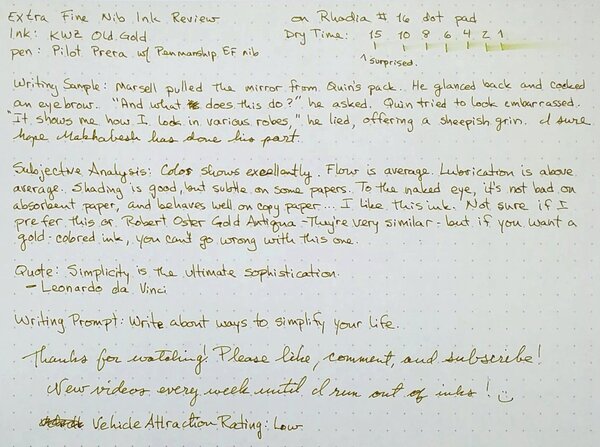 Extra Fine Nib Ink Review on Rhodia # 16 dot pad
Ink: KWZ Old Gold Dry Time: 15 10 8 6 4 2 1
pen: Pilot Prera w/ Penmanship EF nib
^ surprised.
Writing Sample: Marsell pulled the mirror from Quin's pack. He glanced back and cocked
an eyebrow. "And what does this do?" he asked. Quin tried to look embarrassed.
"It shows me how I look in various robes," he lied, offering a sheepish grin. I sure
hope Makhabesh has done his part.
Subjective Analysis: Color shows excellently. Flow is average. Lubrication is above
average. Shading is good, but subtle on some papers. To the naked eye, it's not bad on
absorbent paper, and behaves well on copy paper... I like this ink. Not sure if I
prefer this or Robert Oster Gold Antiqua - They're very similar - but if you want a
gold-colored ink, you can't go wrong with this one.
Quote: Simplicity is the ultimate sophistication.
- Leonardo da Vinci
Writing Prompt: Write about ways to simplify your life.
Thanks for watching! Please like, comment, and subscribe!
New videos every week until I run out of inks!
Vehicle Attraction Rating: Low